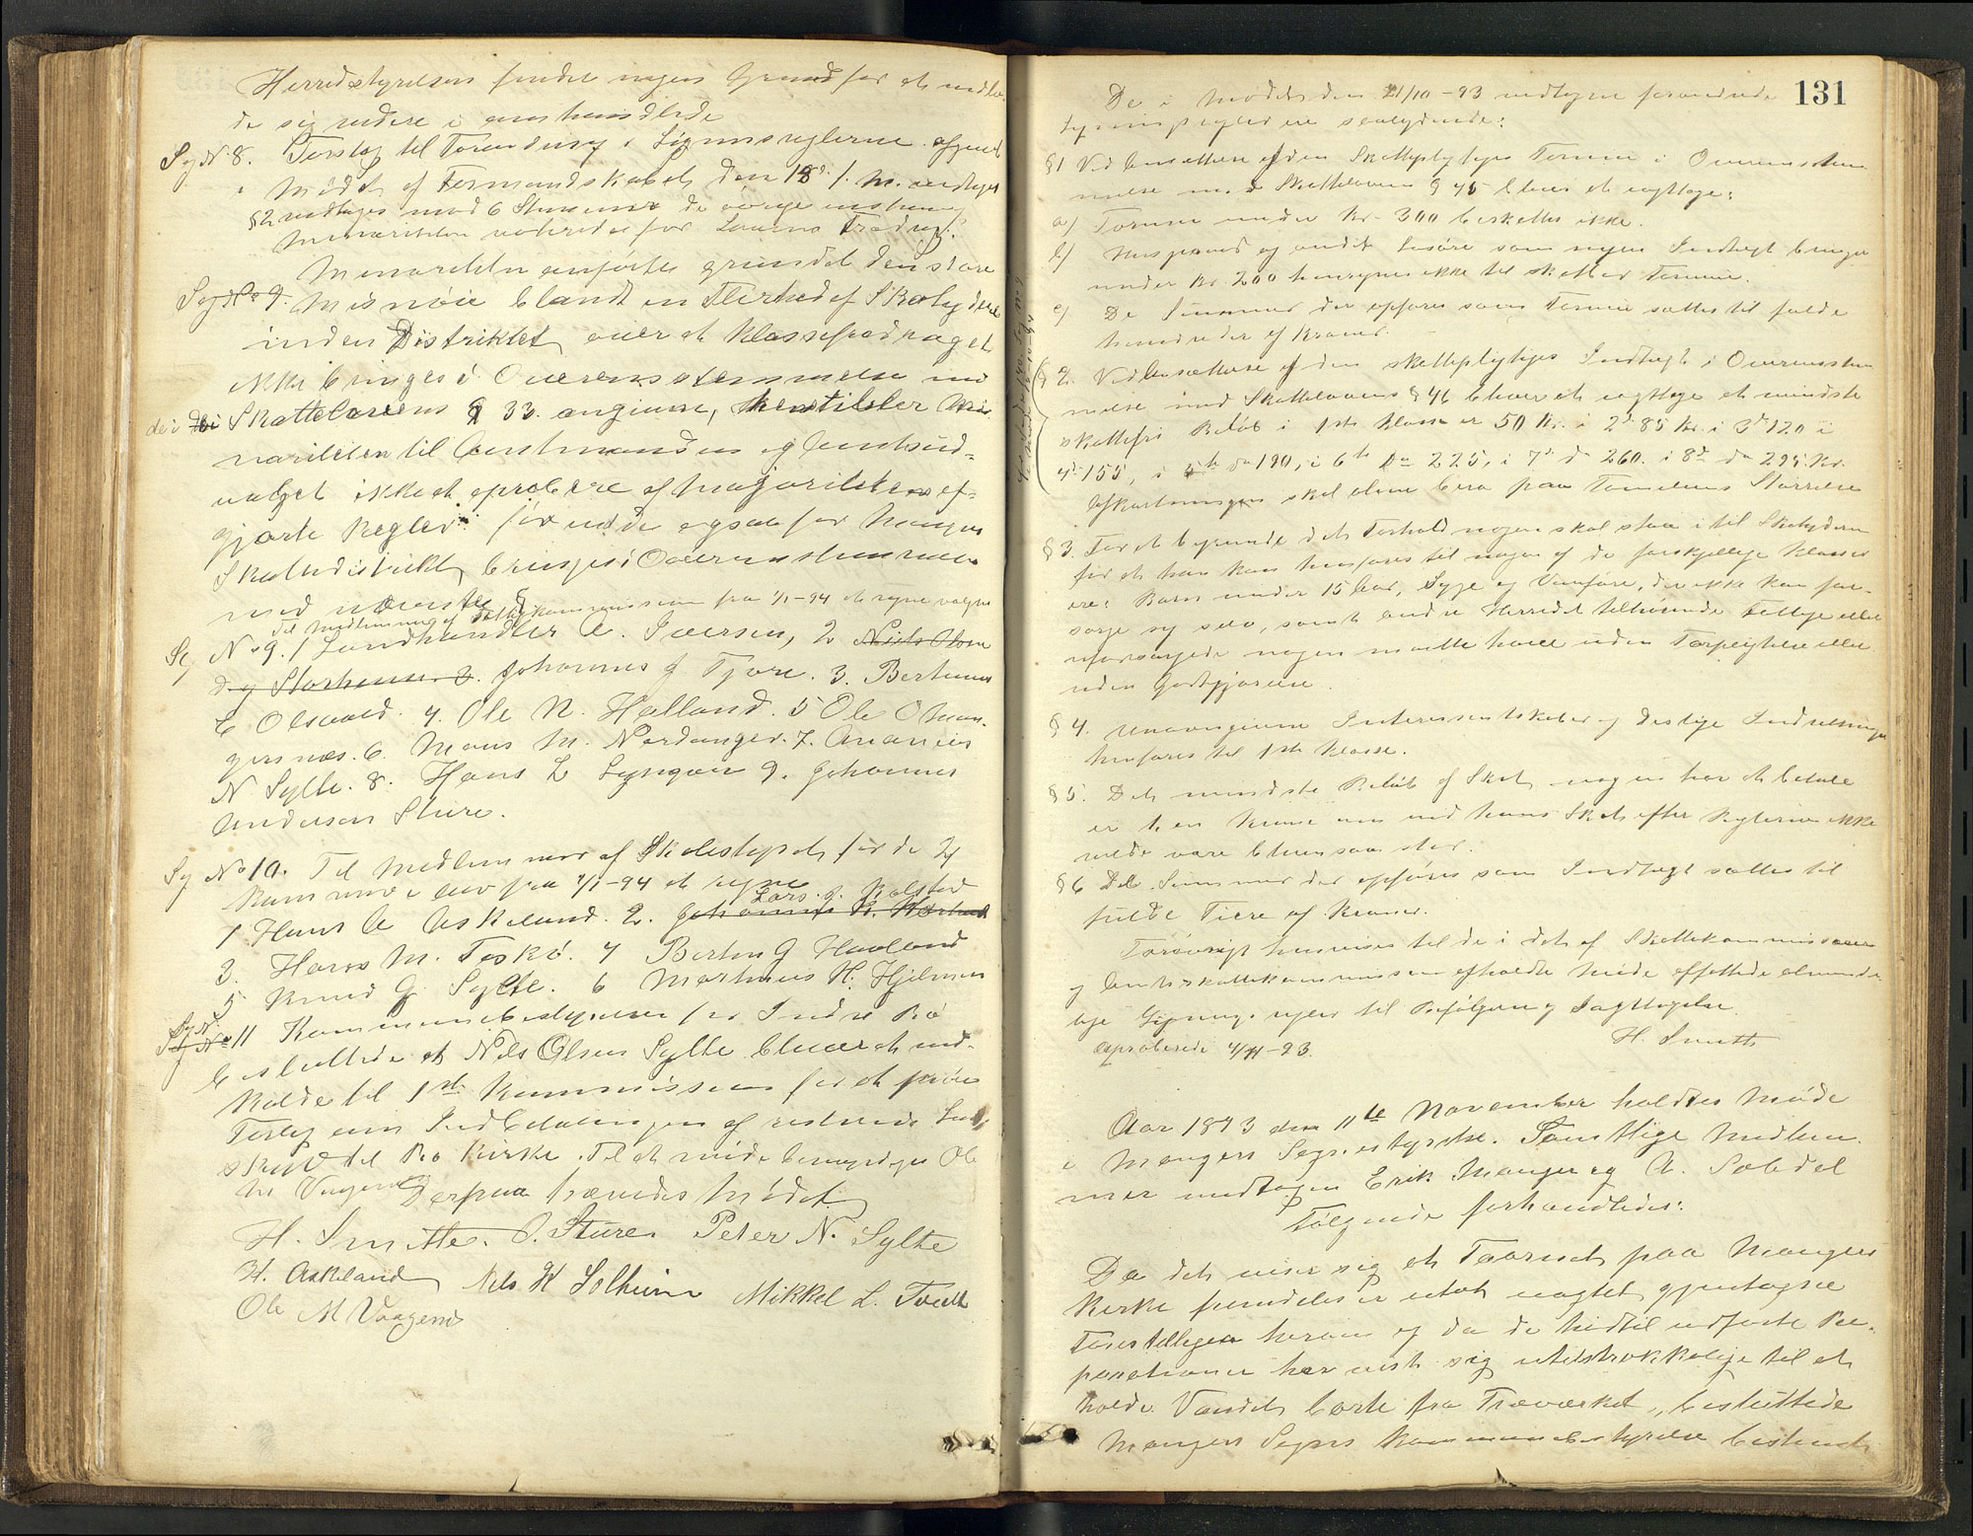 Herredstyrelsen fandt ingen Grund for at indla-
de sig videre i omhandlede
Sag N 8. Forslag til Forandring i Ligningsreglerne afgivet
i Mødet af Formandskabet den 18de f. M. vedtages
§ 2 vedtages med 6 Stemmer de øvrige enstemmig
Minoriteten
Minoriteten anførte grundet den store
Sag No 9. Misnøie blandt en Flerhed af Skatydere
inden Distriktet over at Klassefradraget
ikke bringes i Overensstemmelse med
de i Skattelovens § 33 angivne, henstiller Mi-
noriteten til Amtmanden og Amtsud-
valget ikke at aprobere af Majoriteten af-
gjorte Regler før end de ogsaa for Mangers
Skattedistrikt bringes i Overensstemmelse
med nævnte §
Til Medlemmer af Fattigkommissionen fra 1/1-94 at regne valgtes
Sag No 9. 1 Landhandler A. Iversen, 2 Niels Olsen
Storheim. 2. Johannes J Fjøre. 3. Bertinus
E Olsvold. 4. Ole N. Halland. 5 Ole O Man-
gersnes. 6. Mons M. Nordanger. 7. Ananias
N Sylte. 8. Hans L Lyngøen 9. Johannes
Andersen Sture.
Sag No 10. Til Medlemmer af Skolestyret for de 2
Kommuner fra 1/1-94 at regne
1 Hans A Askeland. 2. Lars J. Kolstad
3. Hans M. Toskø. 4 Bertin J Haaland
5 Knud J Sylte. 6 Martinus H. Hjelmen
Sag N. 11 Kommunebestyrelsen for Indre Rø
besluttede at Nils Olsen Sylte bliver at ind-
kalde til Kommissionen for at prøve
Forlig om Indbetalingen af restende
til Rø Kirke. Til at møde bemyndiges Ole
M Vaagenes
Derpaa hævedes Mødet
H. Smitt. J. Sture. Peter N. Sylte
H. Askeland Nils K Solheim Mikkel L. Tvedt
Ole M Vaagenes
131
De i Mødet den 21/10-93 vedtagne forandrede
Ligningsregler ere saalydende:
§ 1 Ved Ansættelse af den Skattepligtiges Formue i Overensstem-
melse med Skattelovens § 45 bliver at iagttage:
a) Formue under Kr. 300 beskattes ikke.
b) Husgeraad og andet Løsøre som ingen Indtægt bringer
under Kr. 200 henregnes ikke til skattbar Formue.
c) De Summer der opføres som Formue sættes til fulde
hundreder af Kroner.
§ 2. Ved Ansættelse af den skattepligtiges Indtægt i Overensstem-
melse med Skattelovens § 46 bliver at iagttage et mindste
skattefri Beløb i 1ste Klasse er 50 Kr. i 2d 85 Kr. i 3d 120 i
4d 155, i 5te do 190, i 6te do 225, i 7d do 260. i 8d do 295 Kr.
Afkortningen skal alene bero paa Familiens Størrelse
§ 3. For at begrunde det Forhold nogen skal staa i til Skatyderen
for at han kan henføres til nogen af de forskjellige Klasser
ere: Børn under 15 Aar, Syge og Vanføre, der ikke kan for-
sørge sig selv, samt andre Herredet tilhørende Fattige eller
uforsørgede nogen maatte have uden Forpligtelse eller
uden Godtgjørelse.
§ 4. Unavngivne Interessentskaber og deslige Indretninger
henføres til 1ste Klasse.
§ 5. Det mindste Beløb af Skat nogen har at betale
er 1 en Krone om end hans Skat efter Reglerne ikke
vilde være bleven saa stor.
§ 6 De Summer der opføres som Indtægt sættes til
fulde Tiere af Kroner.
Forøvrigt henvises til de i det af Skattekommissionen
og Amtsskattekommissionen afholdte Møde affattede alminde-
lige Lignings regler til Befølgelse og Iagttagelse.
H. Smitt
Aproberede 4/11-93.
Aar 1893 den 11te November holdtes Møde
i Mangers Sognestyrelse. Samtlige Medlem-
mer undtagen Erik Manger og A. Soldal
Følgende forhandledes:
Da det viser sig at Taarnet paa Mangers
Kirke fremdeles er utæt uagtet gjentagne
Forestillinger herom og da de hidtil udførte Re-
parationer har vist sig utilstrækkelige til at
holde Vandet borte fra Træværket, besluttede
Mangers Sogns Kommunebestyrelse bestemt